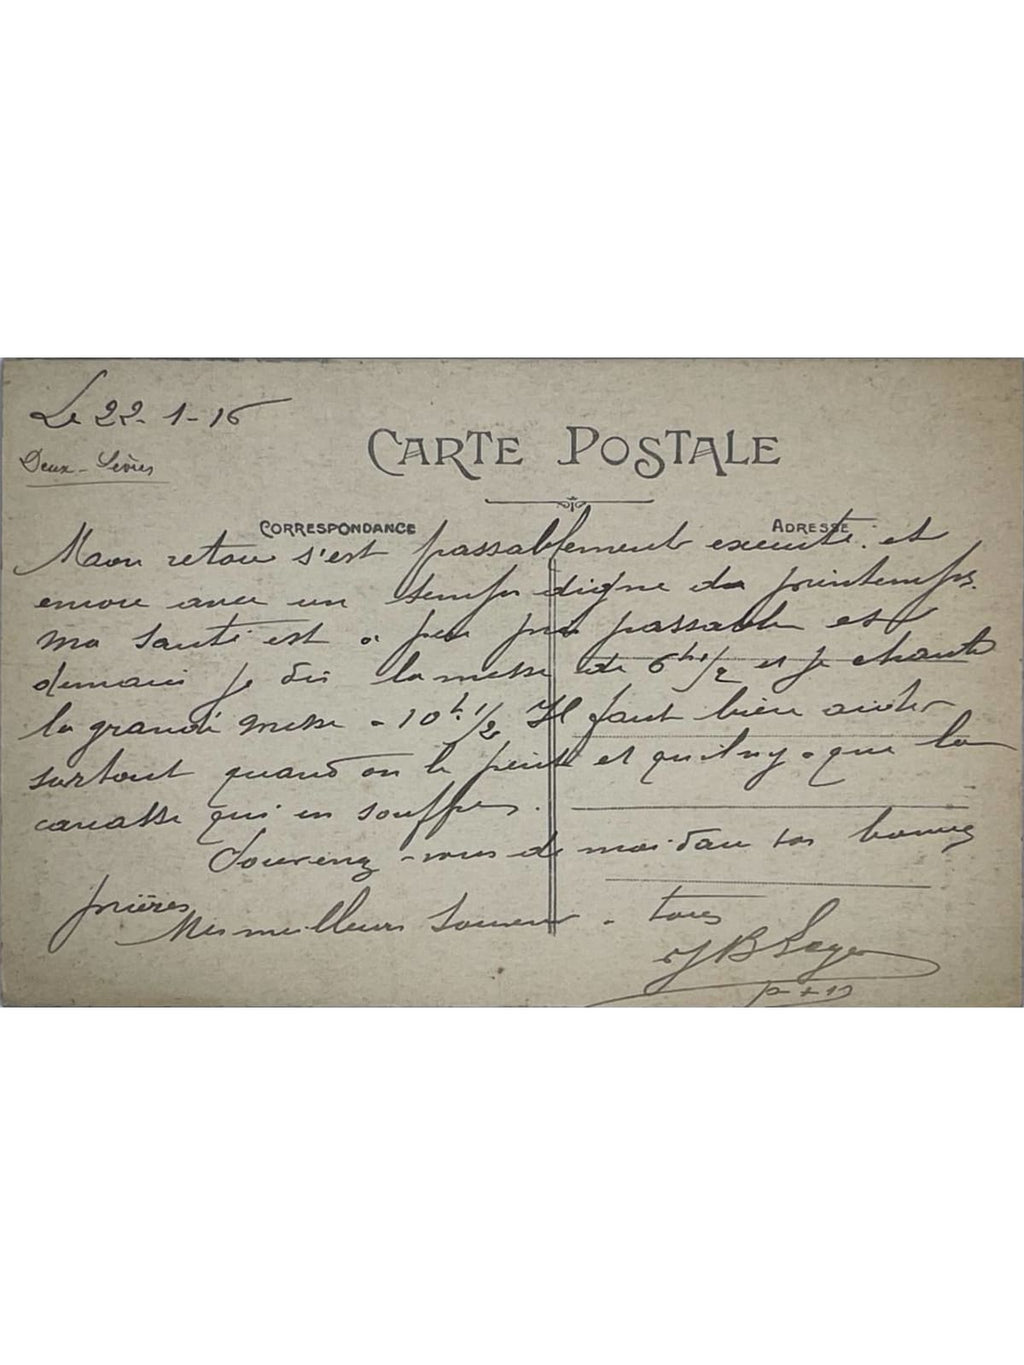 Le 22-1-16
Deux-Sèvres
CARTE POSTALE
CORRESPONDANCE
ADRESSE
Mon retour s'est passablement executé. et
encore avec un temps digne du printemps.
ma santé est à peu près passable et
demain je dis la messe de 6h 1/2 et je chante
la grande messe à 10h. 1/2 Il faut bien aider
surtout quand on le peut et qu'il n'y a que la
carcasse qui en souffre.
Souvenez-vous de moi dans vos bonnes
prières
Mes meilleurs souvenirs à tous
JB Leger